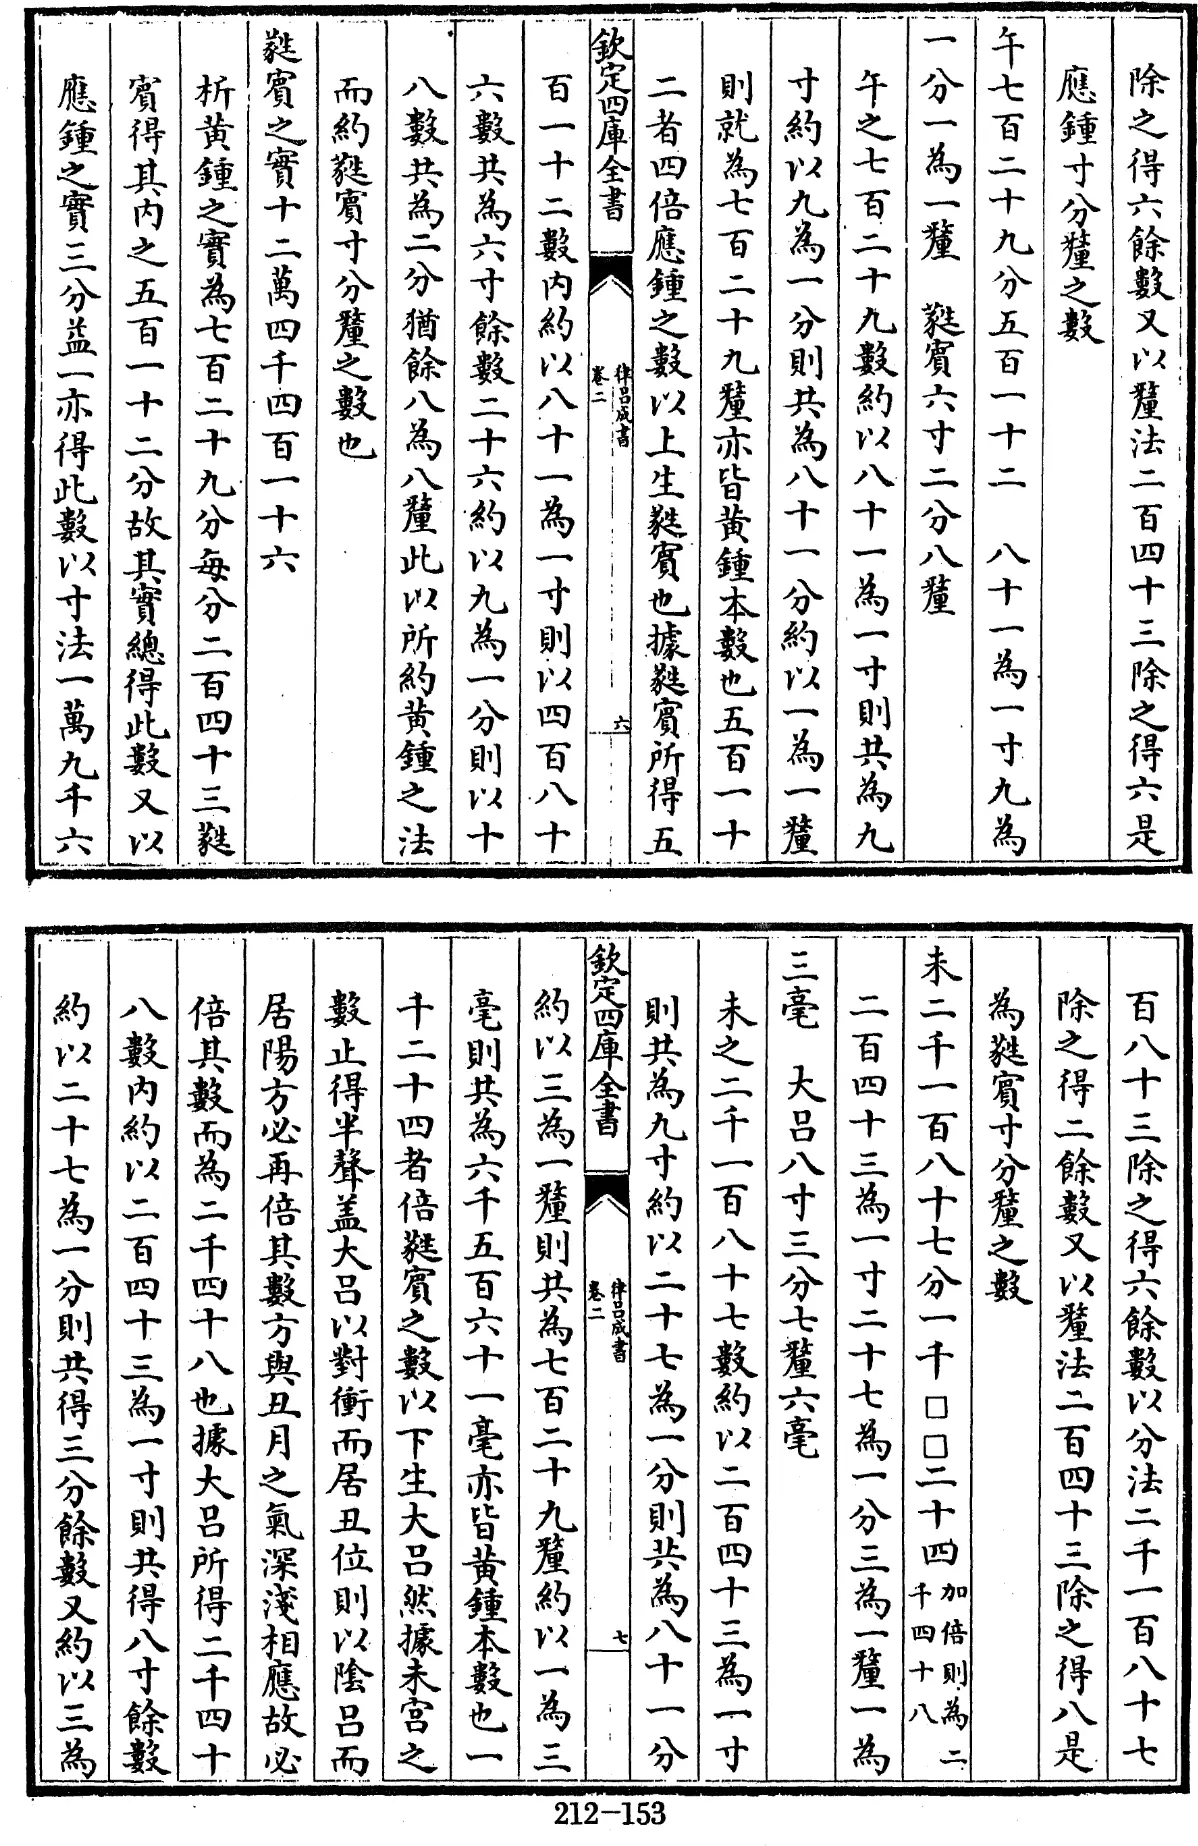 除之得六餘數又以釐法二百四十三除之得六是
應鍾寸分釐之數
午七百二十九分五百一十二　八十一為一寸九為
一分一為一釐　蕤賓六寸二分八釐
午之七百二十九數約以八十一為一寸則共為九
寸約以九為一分則共為八十一分約以一為一釐
則就為七百二十九釐亦皆黃鍾本數也五百一十
二者四倍應鍾之數以上生蕤賓也據蕤賓所得五
欽定四庫全書
律呂成書
卷二
六
百一十二數內約以八十一為一寸則以四百八十
六數共為六寸餘數二十六約以九為一分則以十
八數共為二分猶餘八為八釐此以所約黃鍾之法
而約蕤賓寸分釐之數也
蕤賓之實十二萬四千四百一十六
析黃鍾之實為七百二十九分每分二百四十三蕤
賓得其內之五百一十二分故其實總得此數又以
應鍾之實三分益一亦得此數以寸法一萬九千六
百八十三除之得六餘數以分法二千一百八十七
除之得二餘數又以釐法二百四十三除之得八是
為蕤賓寸分釐之數
未二千一百八十七分一千□□二十四加倍則為二千四十八
二百四十三為一寸二十七為一分三為一釐一為
三毫　大呂八寸三分七釐六毫
未之二千一百八十七數約以二百四十三為一寸
則共為九寸約以二十七為一分則共為八十一分
欽定四庫全書
律呂成書
卷二
七
約以三為一釐則共為七百二十九釐約以一為三
毫則共為六千五百六十一毫亦皆黃鍾本數也一
千二十四者倍蕤賓之數以下生大呂然據未宮之
數止得半聲盖大呂以對衝而居丑位則以陰呂而
居陽方必再倍其數方與丑月之氣深淺相應故必
倍其數而為二千四十八也據大呂所得二千四十
八數內約以二百四十三為一寸則共得八寸餘數
約以二十七為一分則共得三分餘數又約以三為
212-153